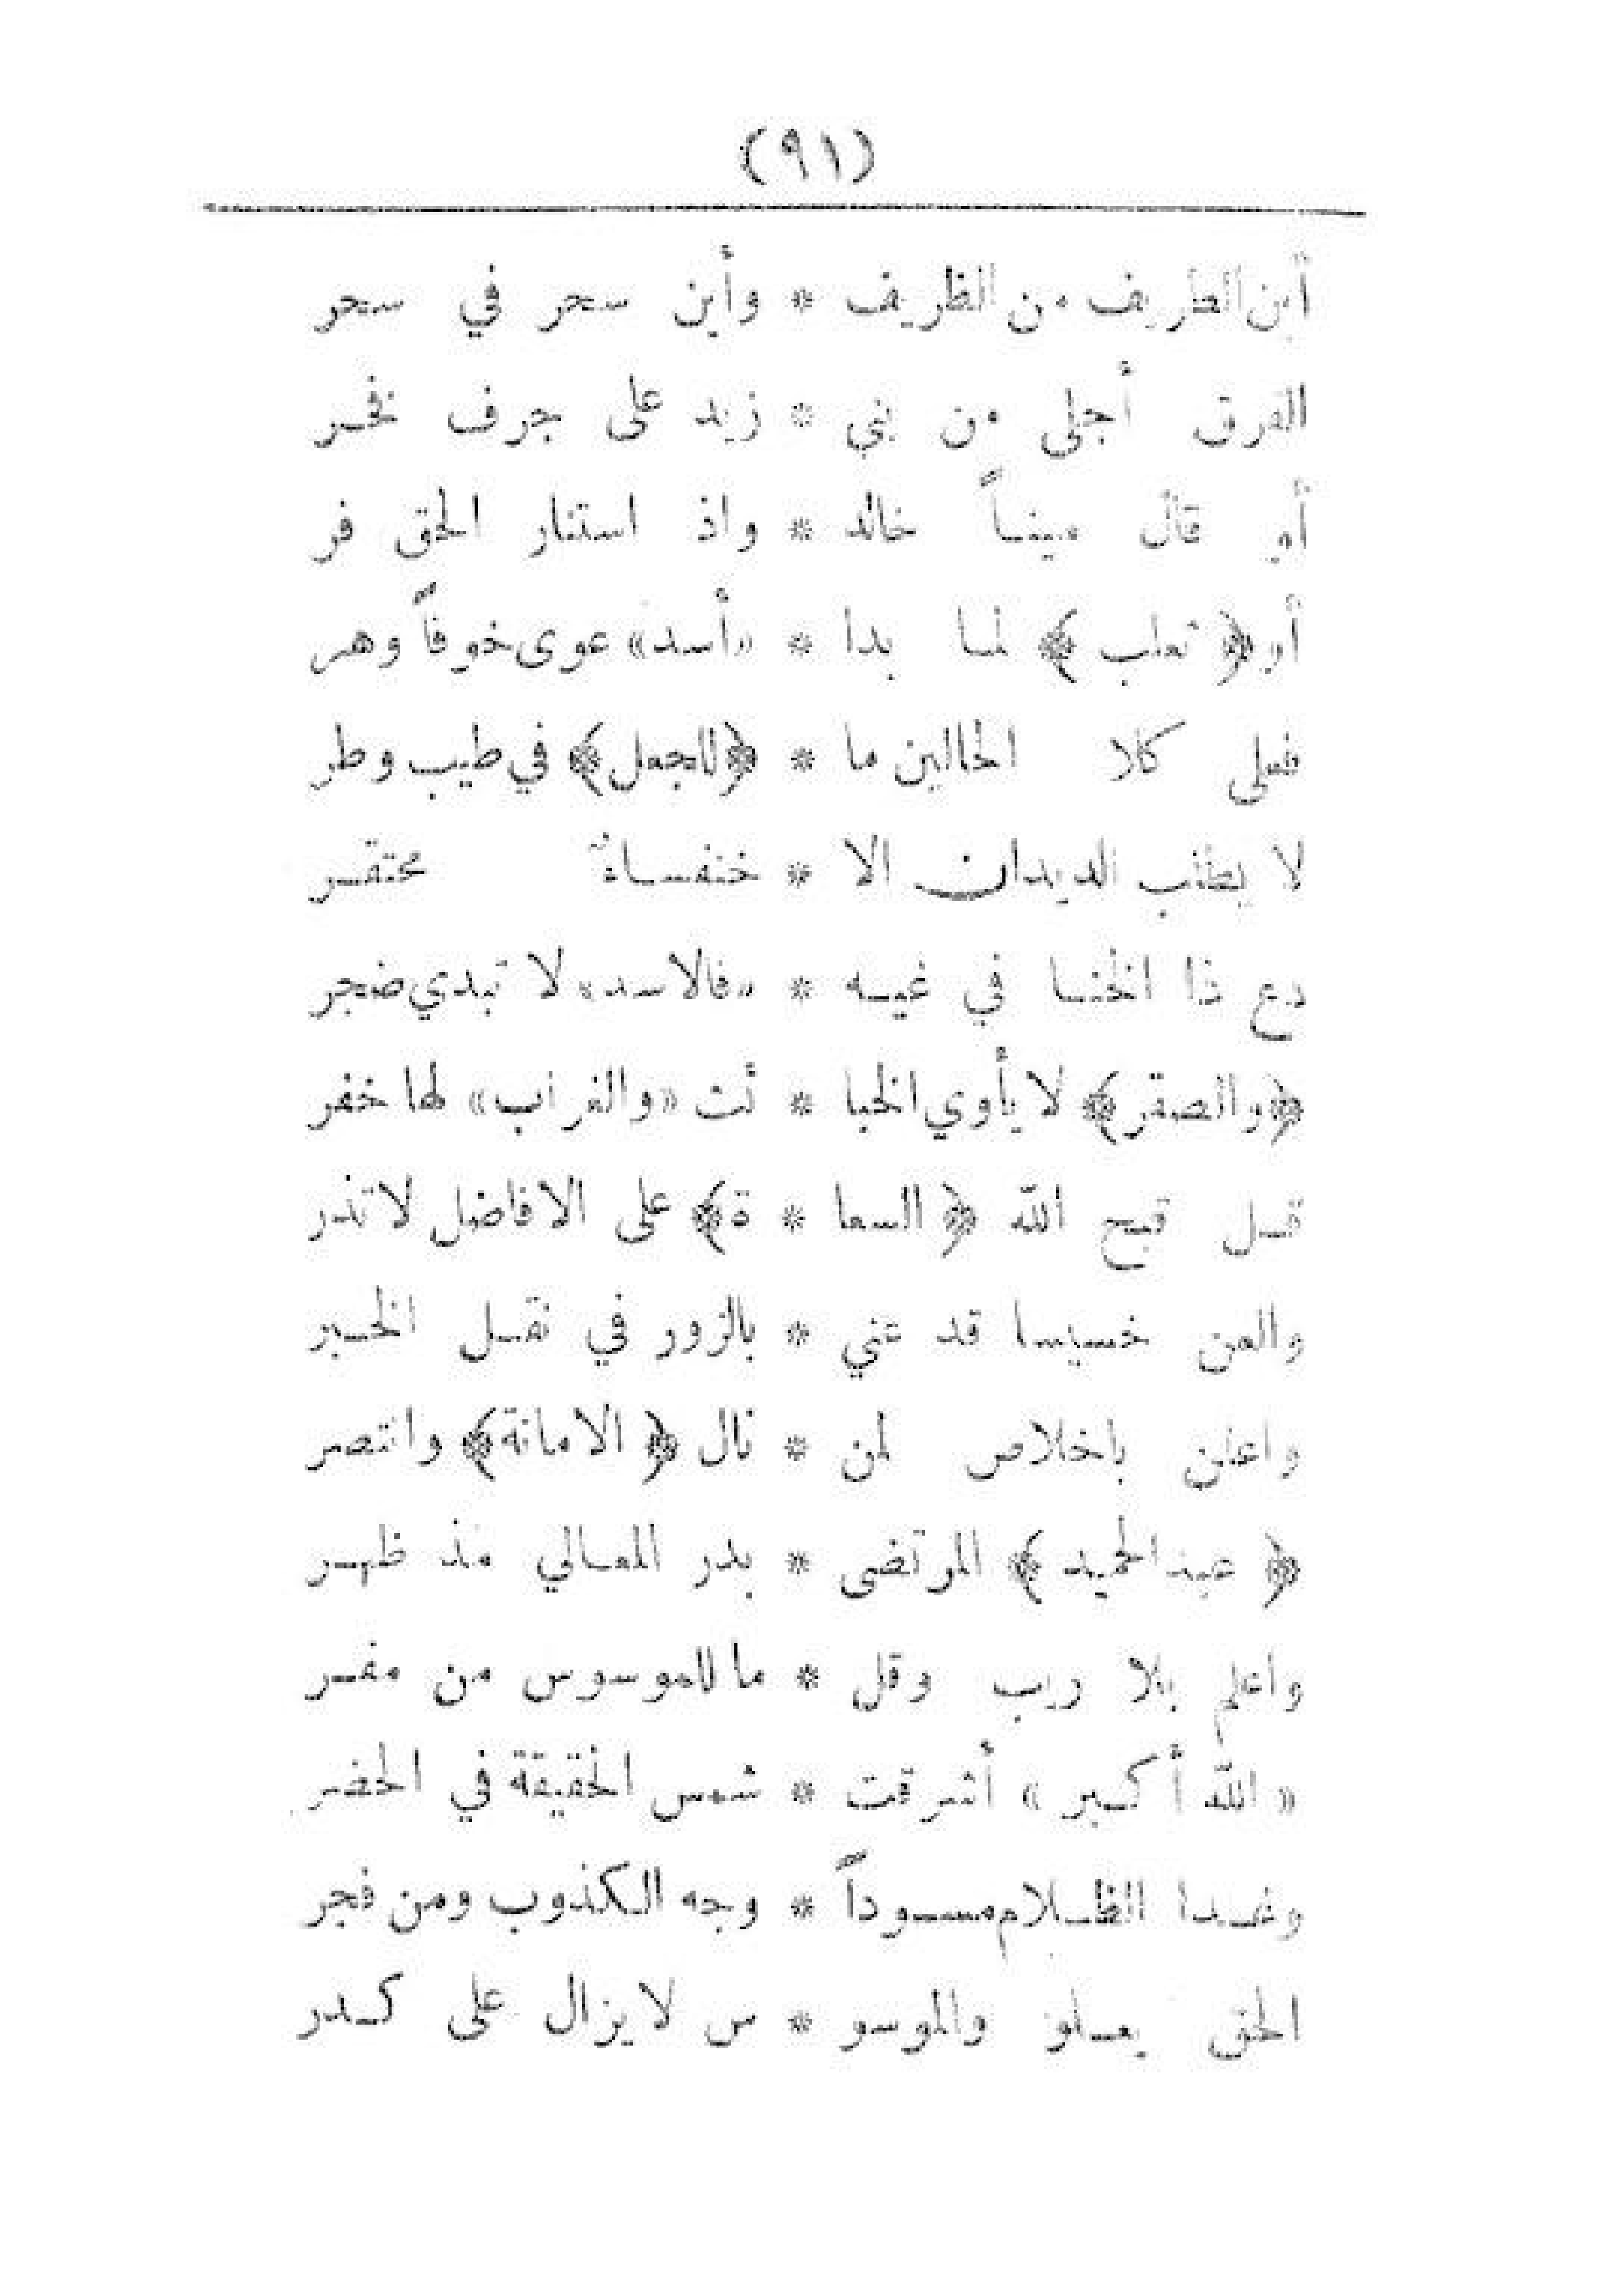 (٩١)
أين الظريف من الظريف * وأين سحر في سحر
الفرق أجلى من بني * زيد على جرف نخر
أو قال مينــاً خالد * واذ استنار الحق فر
أو ﴿ ثعلب ﴾ لمــا بدا * «أسد» عوى خوفاً وهر
فعلى كلا الحالين ما * ﴿للجعل﴾ في طيب وطر
لا يطنب الديدان الا * خنفســاءٌ محتقــر
دع ذا الخنــا في غيــه * «فالاسد» لا تبدي ضجر
﴿والصقر﴾ لا يأوي الخبا * ئث «والغراب» لها خفر
قــل قبح الله ﴿ السعا * ة﴾ على الافاضل لا تذر
والعن خسيسا قد عني * بالزور في نقــل الخــبر
واعلن باخلاص لمن * نال ﴿ الامانة﴾ وانتصر
﴿ عبد الحميد ﴾ المرتضى * بدر المعــالي مذ ظهــر
واعلم بلا ريب وقل * ما للموسوس من مفــر
« الله أكــبر » أشرقت * شمس الحقيقة في الحضر
وغــدا الظــلام مســوداً * وجه الكذوب ومن فجر
الحق يعــلو والموسو * س لا يزال على كــدر